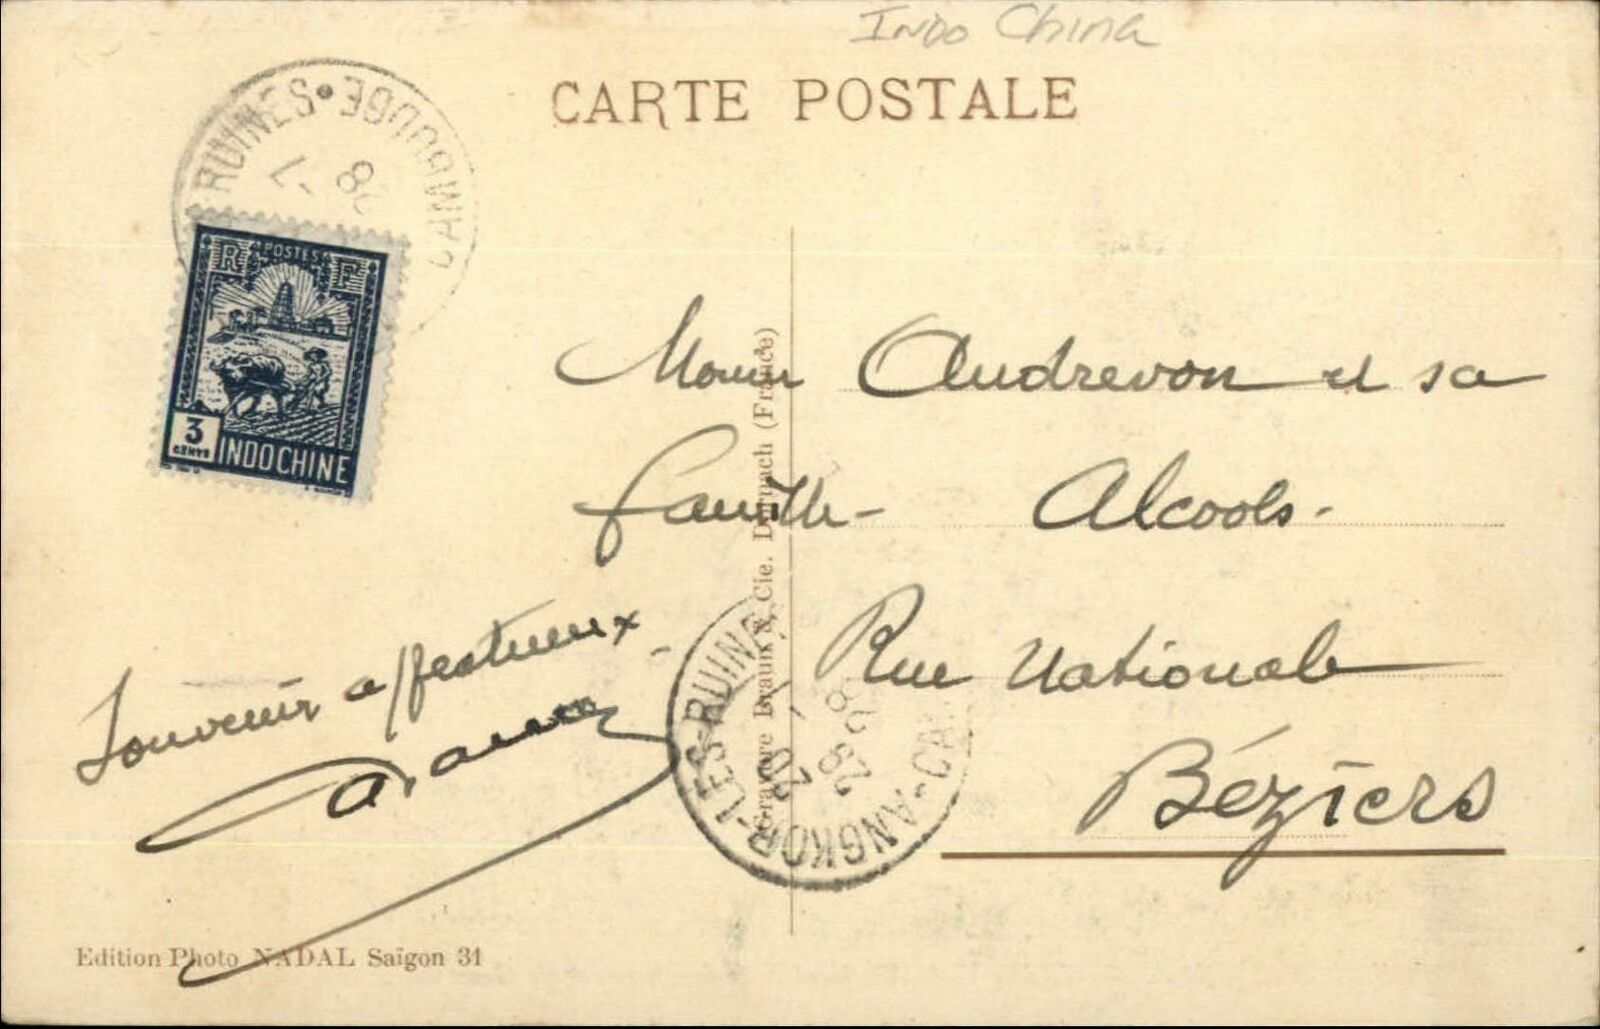 Indo China
CARTE POSTALE
RUINES • CAMBODGE
28
RF
POSTES
3
CENTS
INDOCHINE
Andrevon et sa
famille - Alcools.
Rue Nationale
Béziers
Souvenir affectueux
ANGKOR-LES-RUINES
28
Gravure Braun & Cie. Dornach (France)
Edition Photo NADAL Saïgon 31